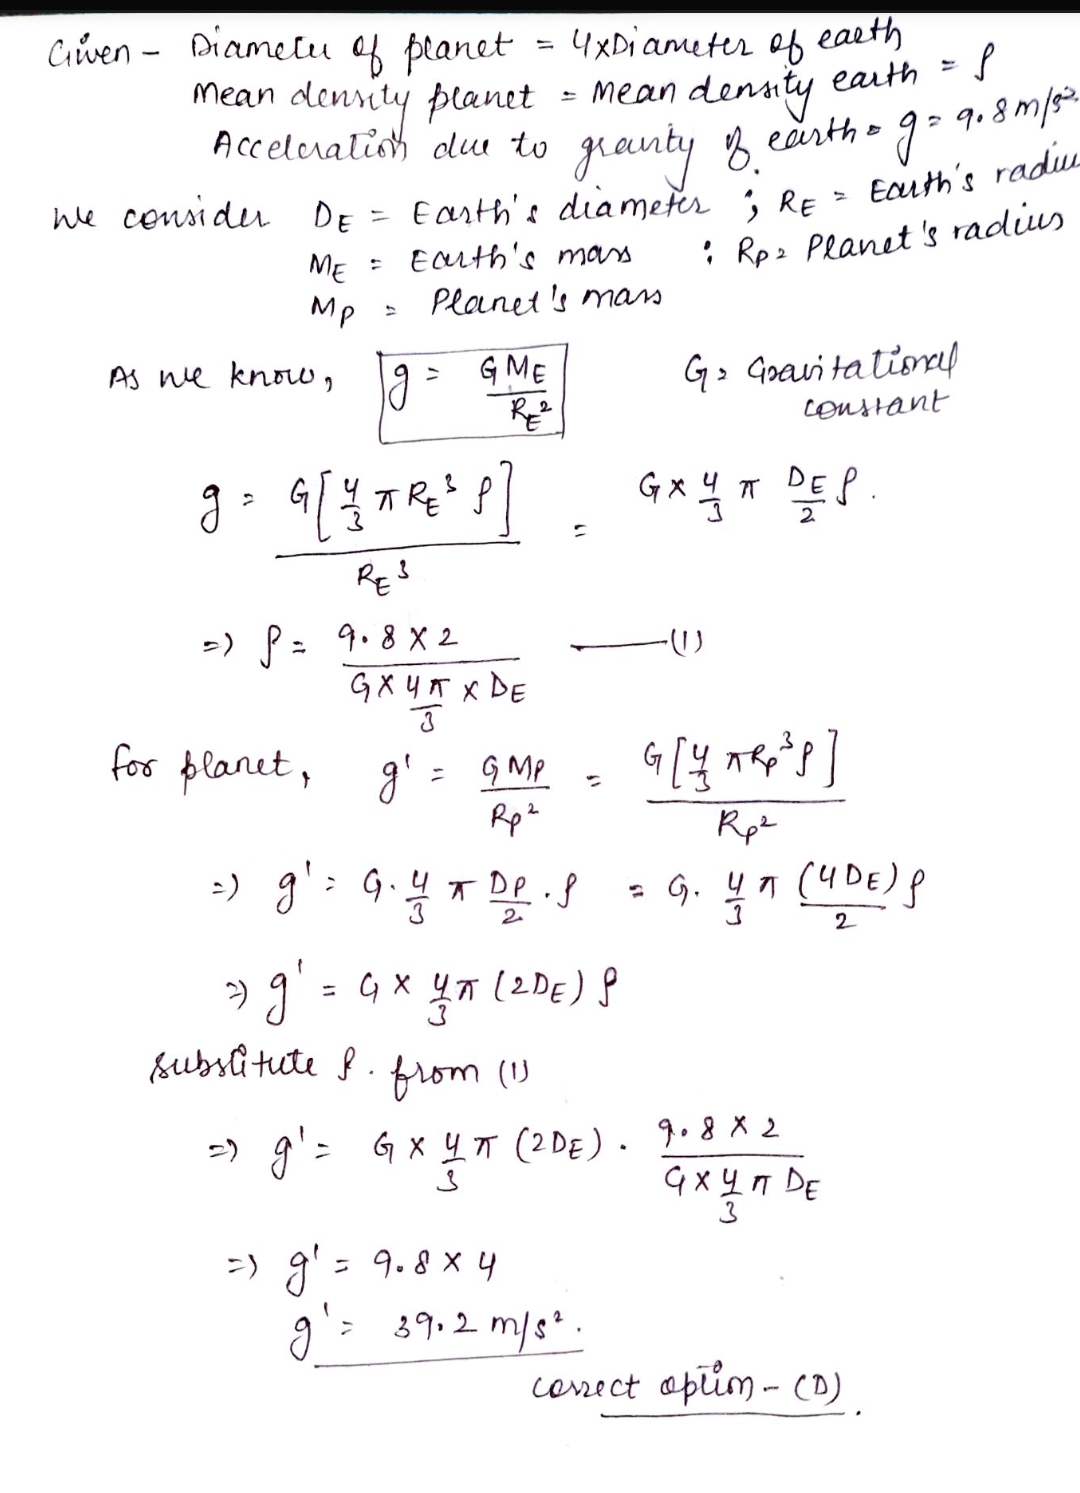 Given - Diameter of planet = 4xDiameter of earth
Mean density planet = Mean density earth = ρ
Acceleration due to gravity of earth = g = 9.8 m/s²
We consider DE = Earth's diameter ; RE = Earth's radius
ME = Earth's mass ; Rp = Planet's radius
Mp = Planet's mass
As we know, g = GME/RE² G = Gravitational constant
g = G[4/3 π RE³ ρ]/RE³ = G x 4/3 π DE/2 ρ.
=) ρ = 9.8 x 2/(G x 4π/3 x DE) —(1)
for planet, g' = GMp/Rp² = G[4/3 πRp³ρ]/Rp²
=) g' = G. 4/3 π Dp/2 . ρ = G. 4/3 π (4DE)/2 ρ
=) g' = G x 4/3 π (2DE) ρ
Substitute ρ. from (1)
=) g' = G x 4/3 π (2DE) . 9.8 x 2/(G x 4/3 π DE)
=) g' = 9.8 x 4
g' = 39.2 m/s².
correct option - (D).